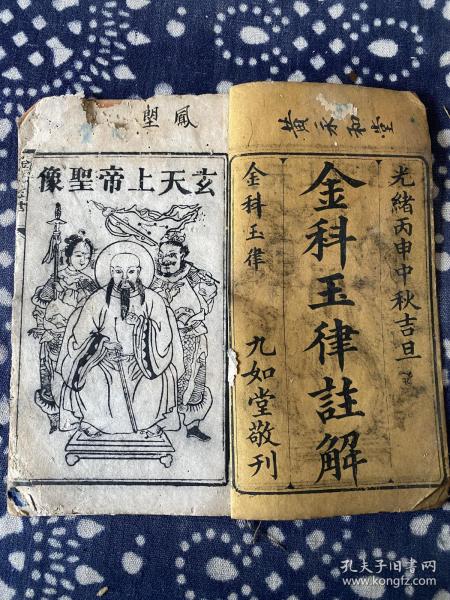 黄永和堂
光緒丙申中秋吉旦
金科玉律註解
金科玉律
九如堂敬刊
鳳
玄天上帝聖像
孔夫子旧书网
www.kongfz.com